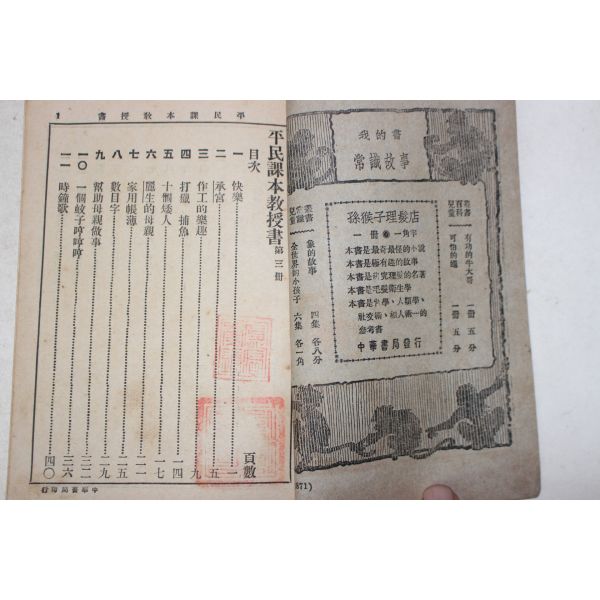 我的書
常識故事
兒童百科叢書
有功的牛大哥 一冊 五分
可怕的蠅 一冊 五分
孫猴子理髮店
一冊 一角半
本書是最奇最怪的小說
本書是極有趣的故事
本書是研究理髮的名著
本書是毛髮衛生學
本書是哲學、人類學、
社交術、相人術…的
參考書
中華書局發行
兒童常識叢書
象的故事 四集 各八分
全世界的小孩子 六集 各一角
871)
平民課本教授書 1
平民課本教授書 第三冊
目次 頁數
一 快樂 一
二 承宮 五
三 作工的樂趣 九
四 打獵 捕魚 一四
五 十個矮人 一七
六 麗生的母親 二一
七 家用帳簿 二五
八 數目字 二九
九 幫助母親做事 三二
一〇 一個蚊子哼哼哼 三六
一一 時鐘歌 四〇
中華書局印行